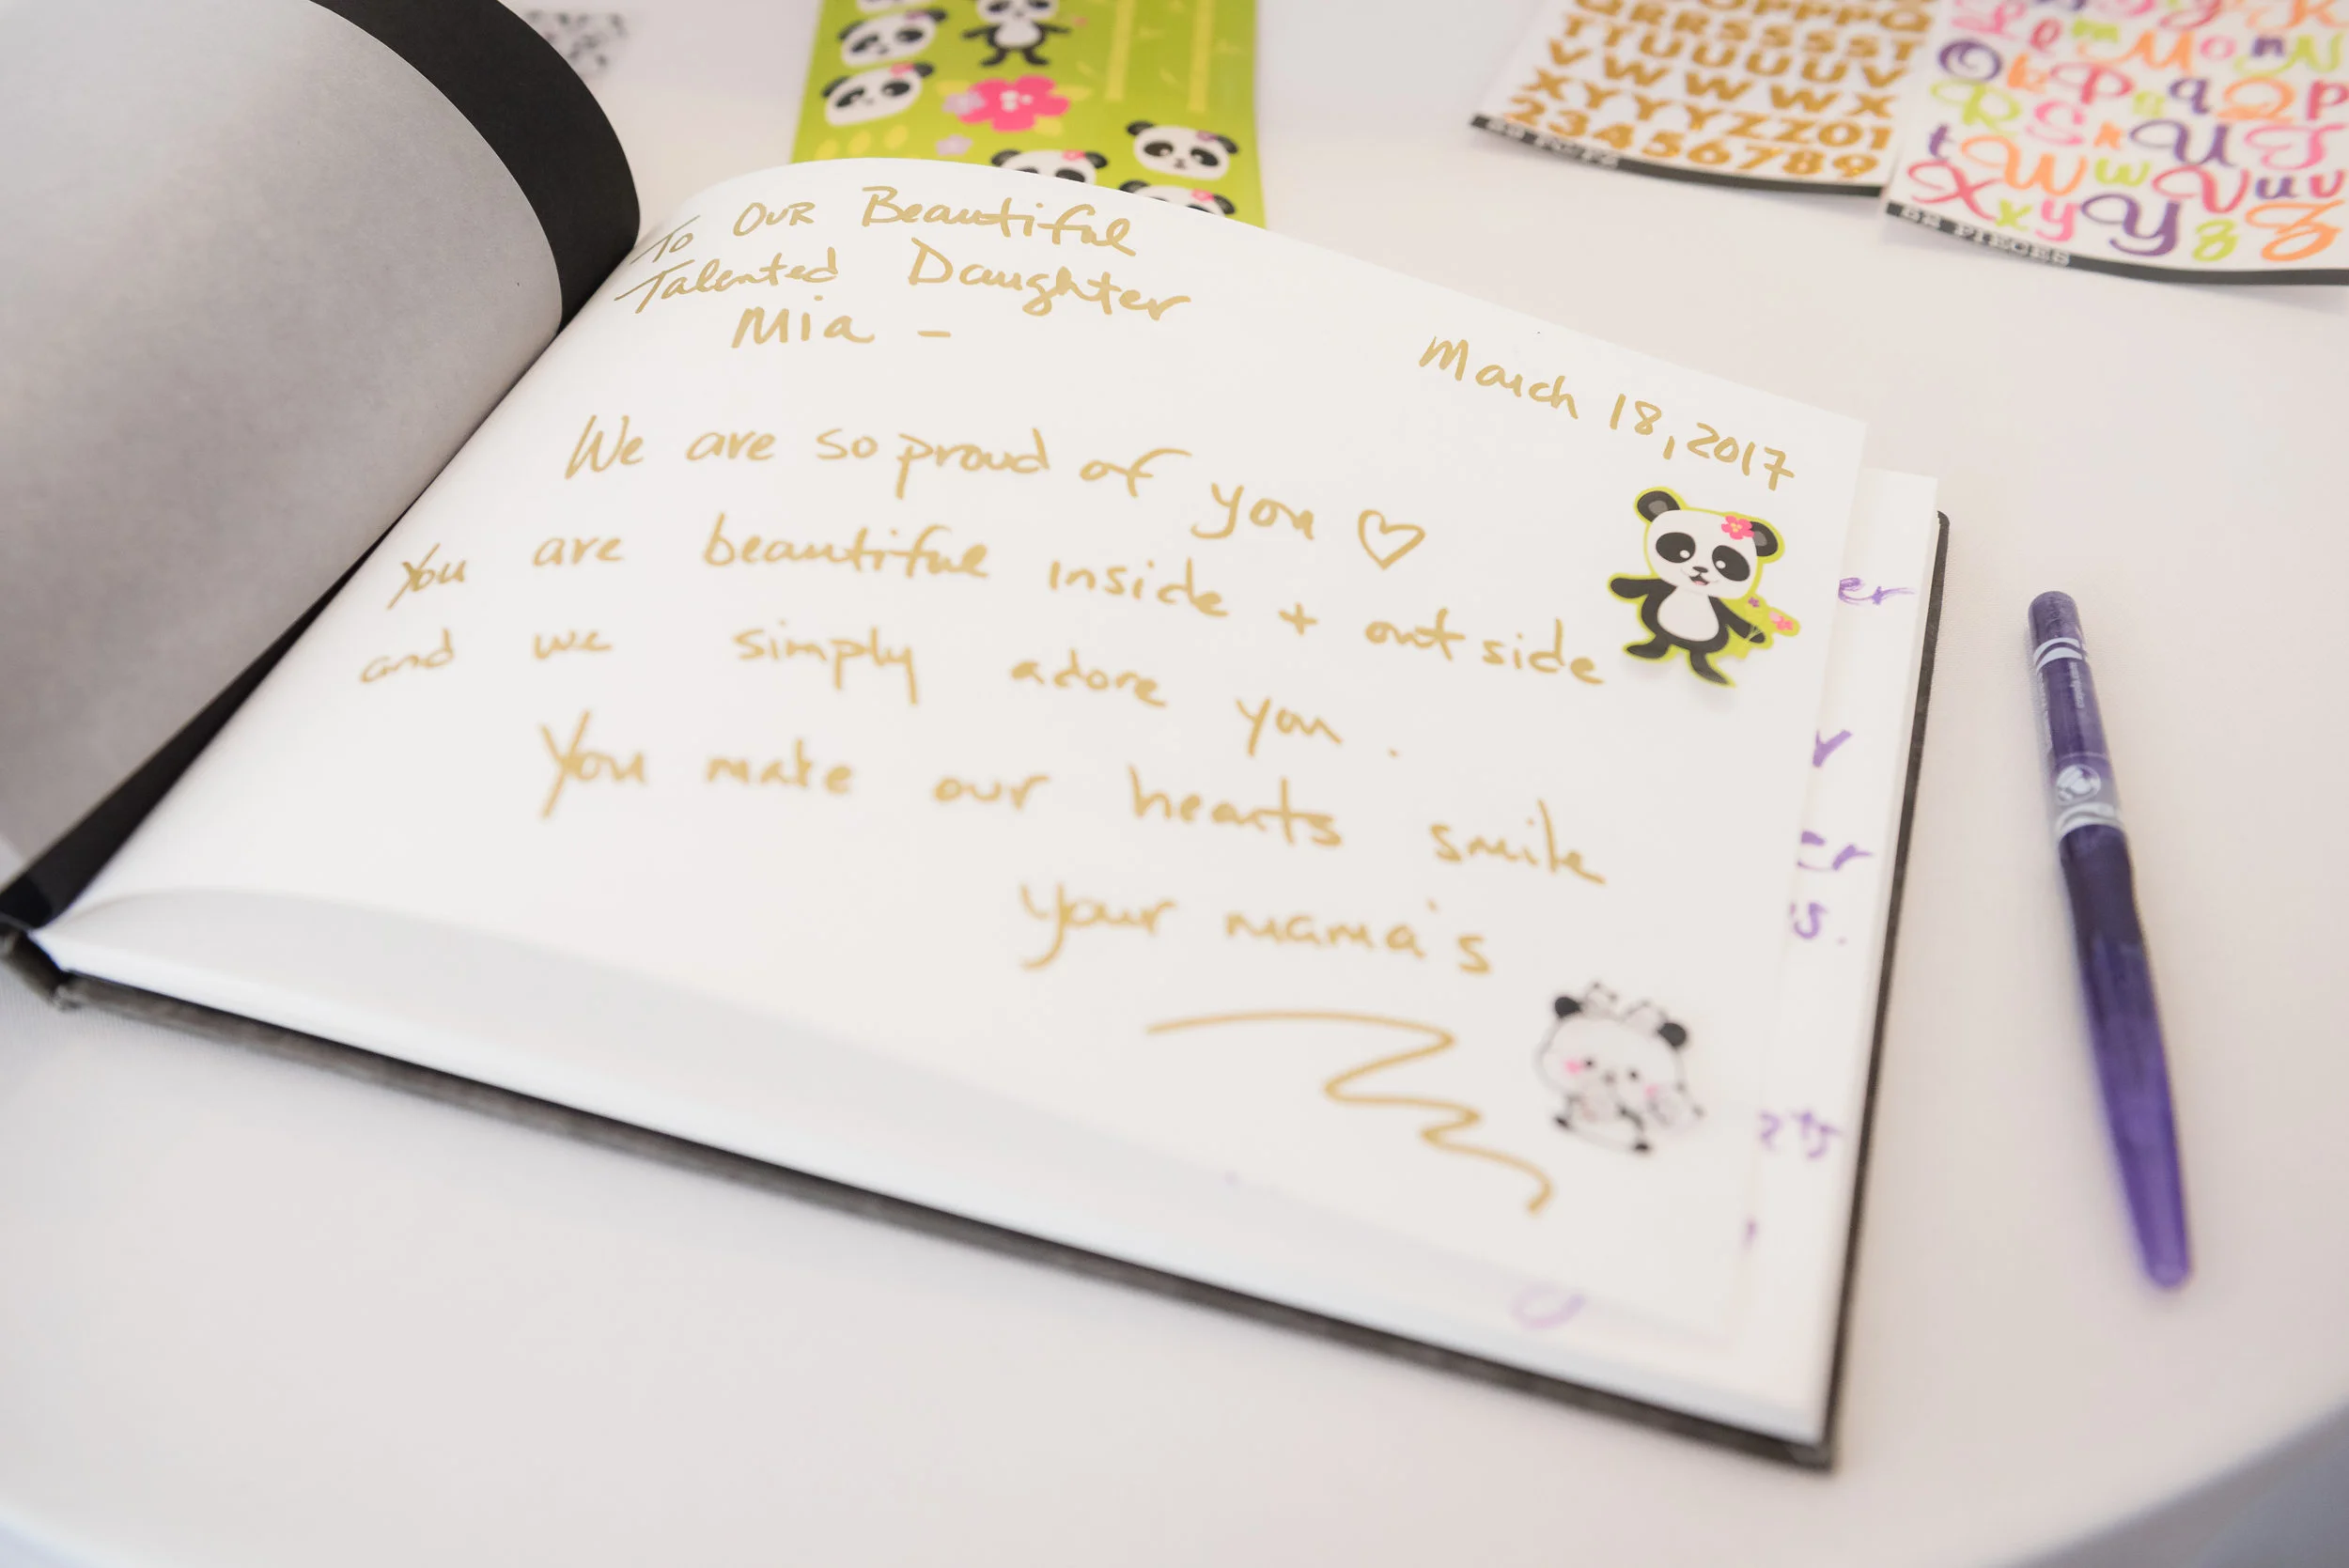 To OUR Beautiful
Talented Daughter
Mia -
March 18, 2017
We are so proud of you ♡
You are beautiful inside + outside
and we simply adore you.
You make our hearts smile
your mama's
er
r
er
s.
QRRSSSST
TTUUUUV
VWWWWX
XYYYZZ01
23456789
68 PIECES